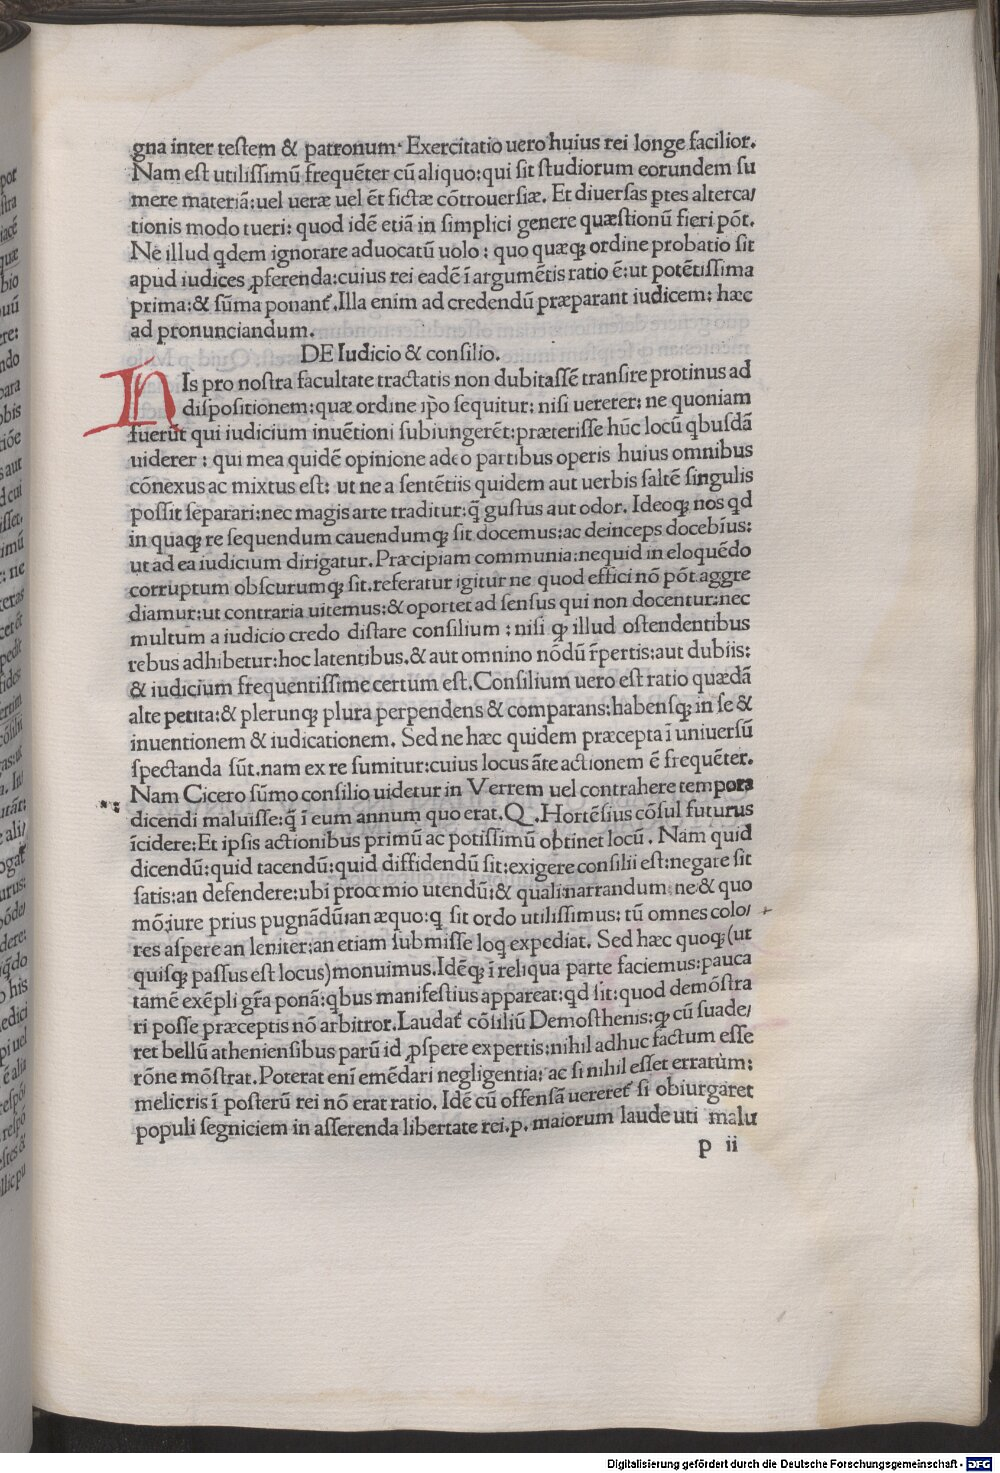 gna inter testem & patronum. Exercitatio uero huius rei longe facilior.
Nam est utilissimū frequēter cū aliquo: qui sit studiorum eorundem su
mere materiā: uel ueræ uel ēt fictæ cōtrouersiæ. Et diuersas ꝑtes alterca/
tionis modo tueri: quod idē etiā in simplici genere quæstionū fieri pōt.
Ne illud qdem ignorare aduocatū uolo: quo quæqꝫ ordine probatio sit
apud iudices ꝓferenda: cuius rei eadē ī argumētis ratio ē: ut potētissima
prima: & sūma ponant̄. Illa enim ad credendū præparant iudicem: hæc
ad pronunciandum.
DE Iudicio & consilio.
HIs pro nostra facultate tractatis non dubitassē transire protinus ad
dispositionem: quæ ordine ip̄o sequitur: nisi uererer: ne quoniam
fuerūt qui iudicium inuētioni subiungerēt: præterisse hūc locū qbusdā
uiderer: qui mea quidē opinione adeo partibus operis huius omnibus
cōnexus ac mixtus est: ut ne a sentētiis quidem aut uerbis saltē singulis
possit separari: nec magis arte traditur: q̄ gustus aut odor. Ideoqꝫ nos qd
in quaqꝫ re sequendum cauendumqꝫ sit docemus: ac deinceps docebīus:
ut ad ea iudicium dirigatur. Præcipiam communia: nequid in eloquēdo
corruptum obscurumqꝫ sit. referatur igitur ne quod effici nō pōt aggre
diamur: ut contraria uitemus: & oportet ad sensus qui non docentur: nec
multum a iudicio credo distare consilium: nisi qꝫ illud ostendentibus
rebus adhibetur: hoc latentibus. & aut omnino nōdū r̄pertis: aut dubiis:
& iudicium frequentissime certum est. Consilium uero est ratio quædā
alte petita: & plerunqꝫ plura perpendens & comparans: habensqꝫ in se &
inuentionem & iudicationem. Sed ne hæc quidem præcepta ī uniuersū
spectanda sūt. nam ex re sumitur: cuius locus āte actionem ē frequēter.
Nam Cicero sūmo consilio uidetur in Verrem uel contrahere tempora
dicendi maluisse: q̄ ī eum annum quo erat. Q. Hortēsius cōsul futurus
īcidere: Et ipsis actionibus primū ac potissimū obtinet locū. Nam quid
dicendū: quid tacendū: quid diffidendū sit: exigere consilii est: negare sit
satis: an defendere: ubi prooemio utendū: & quali: narrandum: ne & quo
mō: iure prius pugnādū: an æquo: q̄ sit ordo utilissimus: tū omnes colo/
res aspere an leniter: an etiam submisse loq expediat. Sed hæc quoqꝫ (ut
quisqꝫ passus est locus) monuimus. Idēqꝫ ī reliqua parte faciemus: pauca
tamē exēpli gr̄a ponā: qbus manifestius appareat: qd sit: quod demōstra
ri posse præceptis nō arbitror. Laudat̄ cōsiliū Demosthenis: qꝫ cū suade/
ret bellū atheniensibus parū id ꝓspere expertis: nihil adhuc factum esse
rōne mōstrat. Poterat enī emēdari negligentia: ac si nihil esset erratum:
melioris ī posterū rei nō erat ratio. Idē cū offensā uereret̄ si obiurgaret
populi segniciem in asserenda libertate rei. p. maiorum laude uti malu
p ii
Digitalisierung gefördert durch die Deutsche Forschungsgemeinschaft - DFG